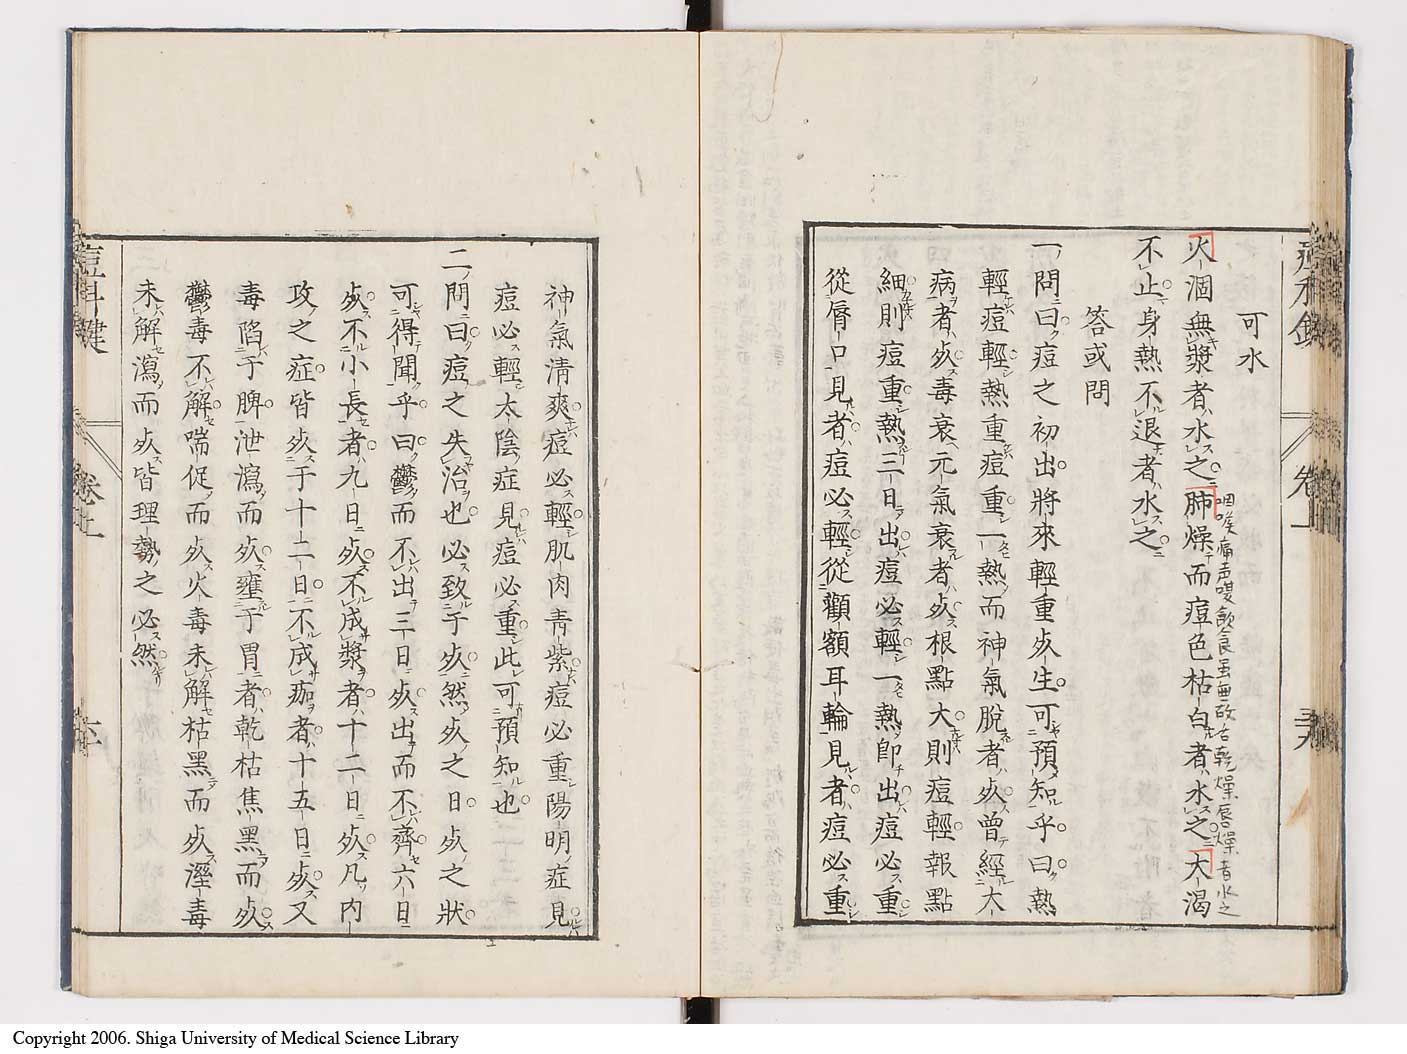 可水
火涸無漿者水之肺燥而痘色枯白者水之大渴
咽喉痛声嗄飲食虽無故舌乾燥唇燥者水之
不止身熱不退者水之
答或問
一問曰痘之初出將來輕重死生可預知乎曰熱
輕痘輕熱重痘重一熱而神氣脫者死曾經大
病者死毒衰元氣衰者死根點大則痘輕報點
細則痘重熱三日出痘必輕一熱即出痘必重
從唇口見者痘必輕從顴額耳輪見者痘必重
神氣清爽痘必輕肌肉青紫痘必重陽明症見
痘必輕太陰症見痘必重此可預知也
二問曰痘之失治也必致于死然死之日死之狀
可得聞乎曰鬱而不出三日死出而不齊六日
死不小長者九日死不成漿者十二日死凡內
攻之症皆死于十二日不成痂者十五日死又
毒陷于脾泄瀉而死壅于胃者乾枯焦黑而死
鬱毒不解喘促而死火毒未解枯黑而死溼毒
未解瀉而死皆理勢之必然
痘科鍵
卷上
Copyright 2006. Shiga University of Medical Science Library